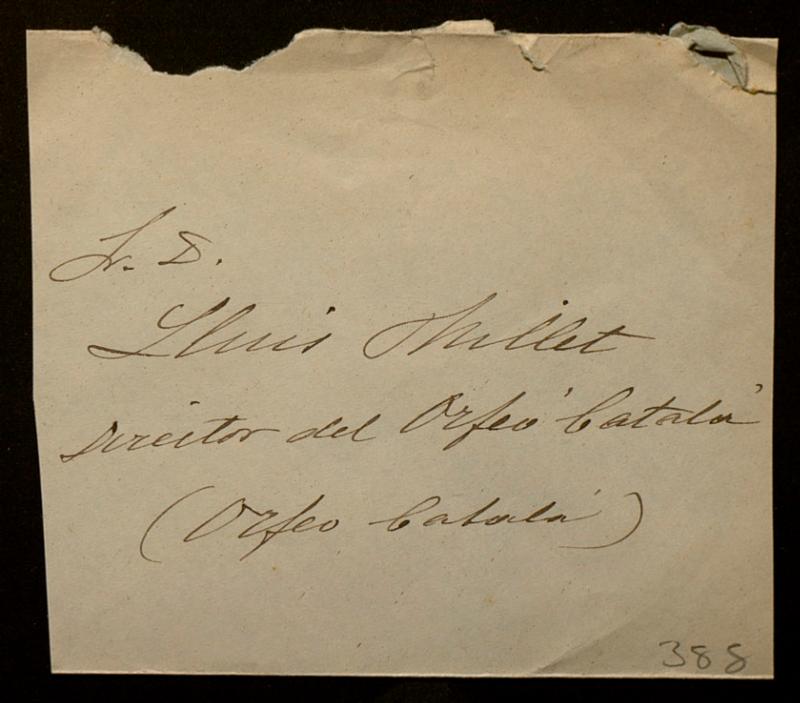 Sr. D.
Lluis Millet
Director del Orfeó Català
(Orfeo Català)
388